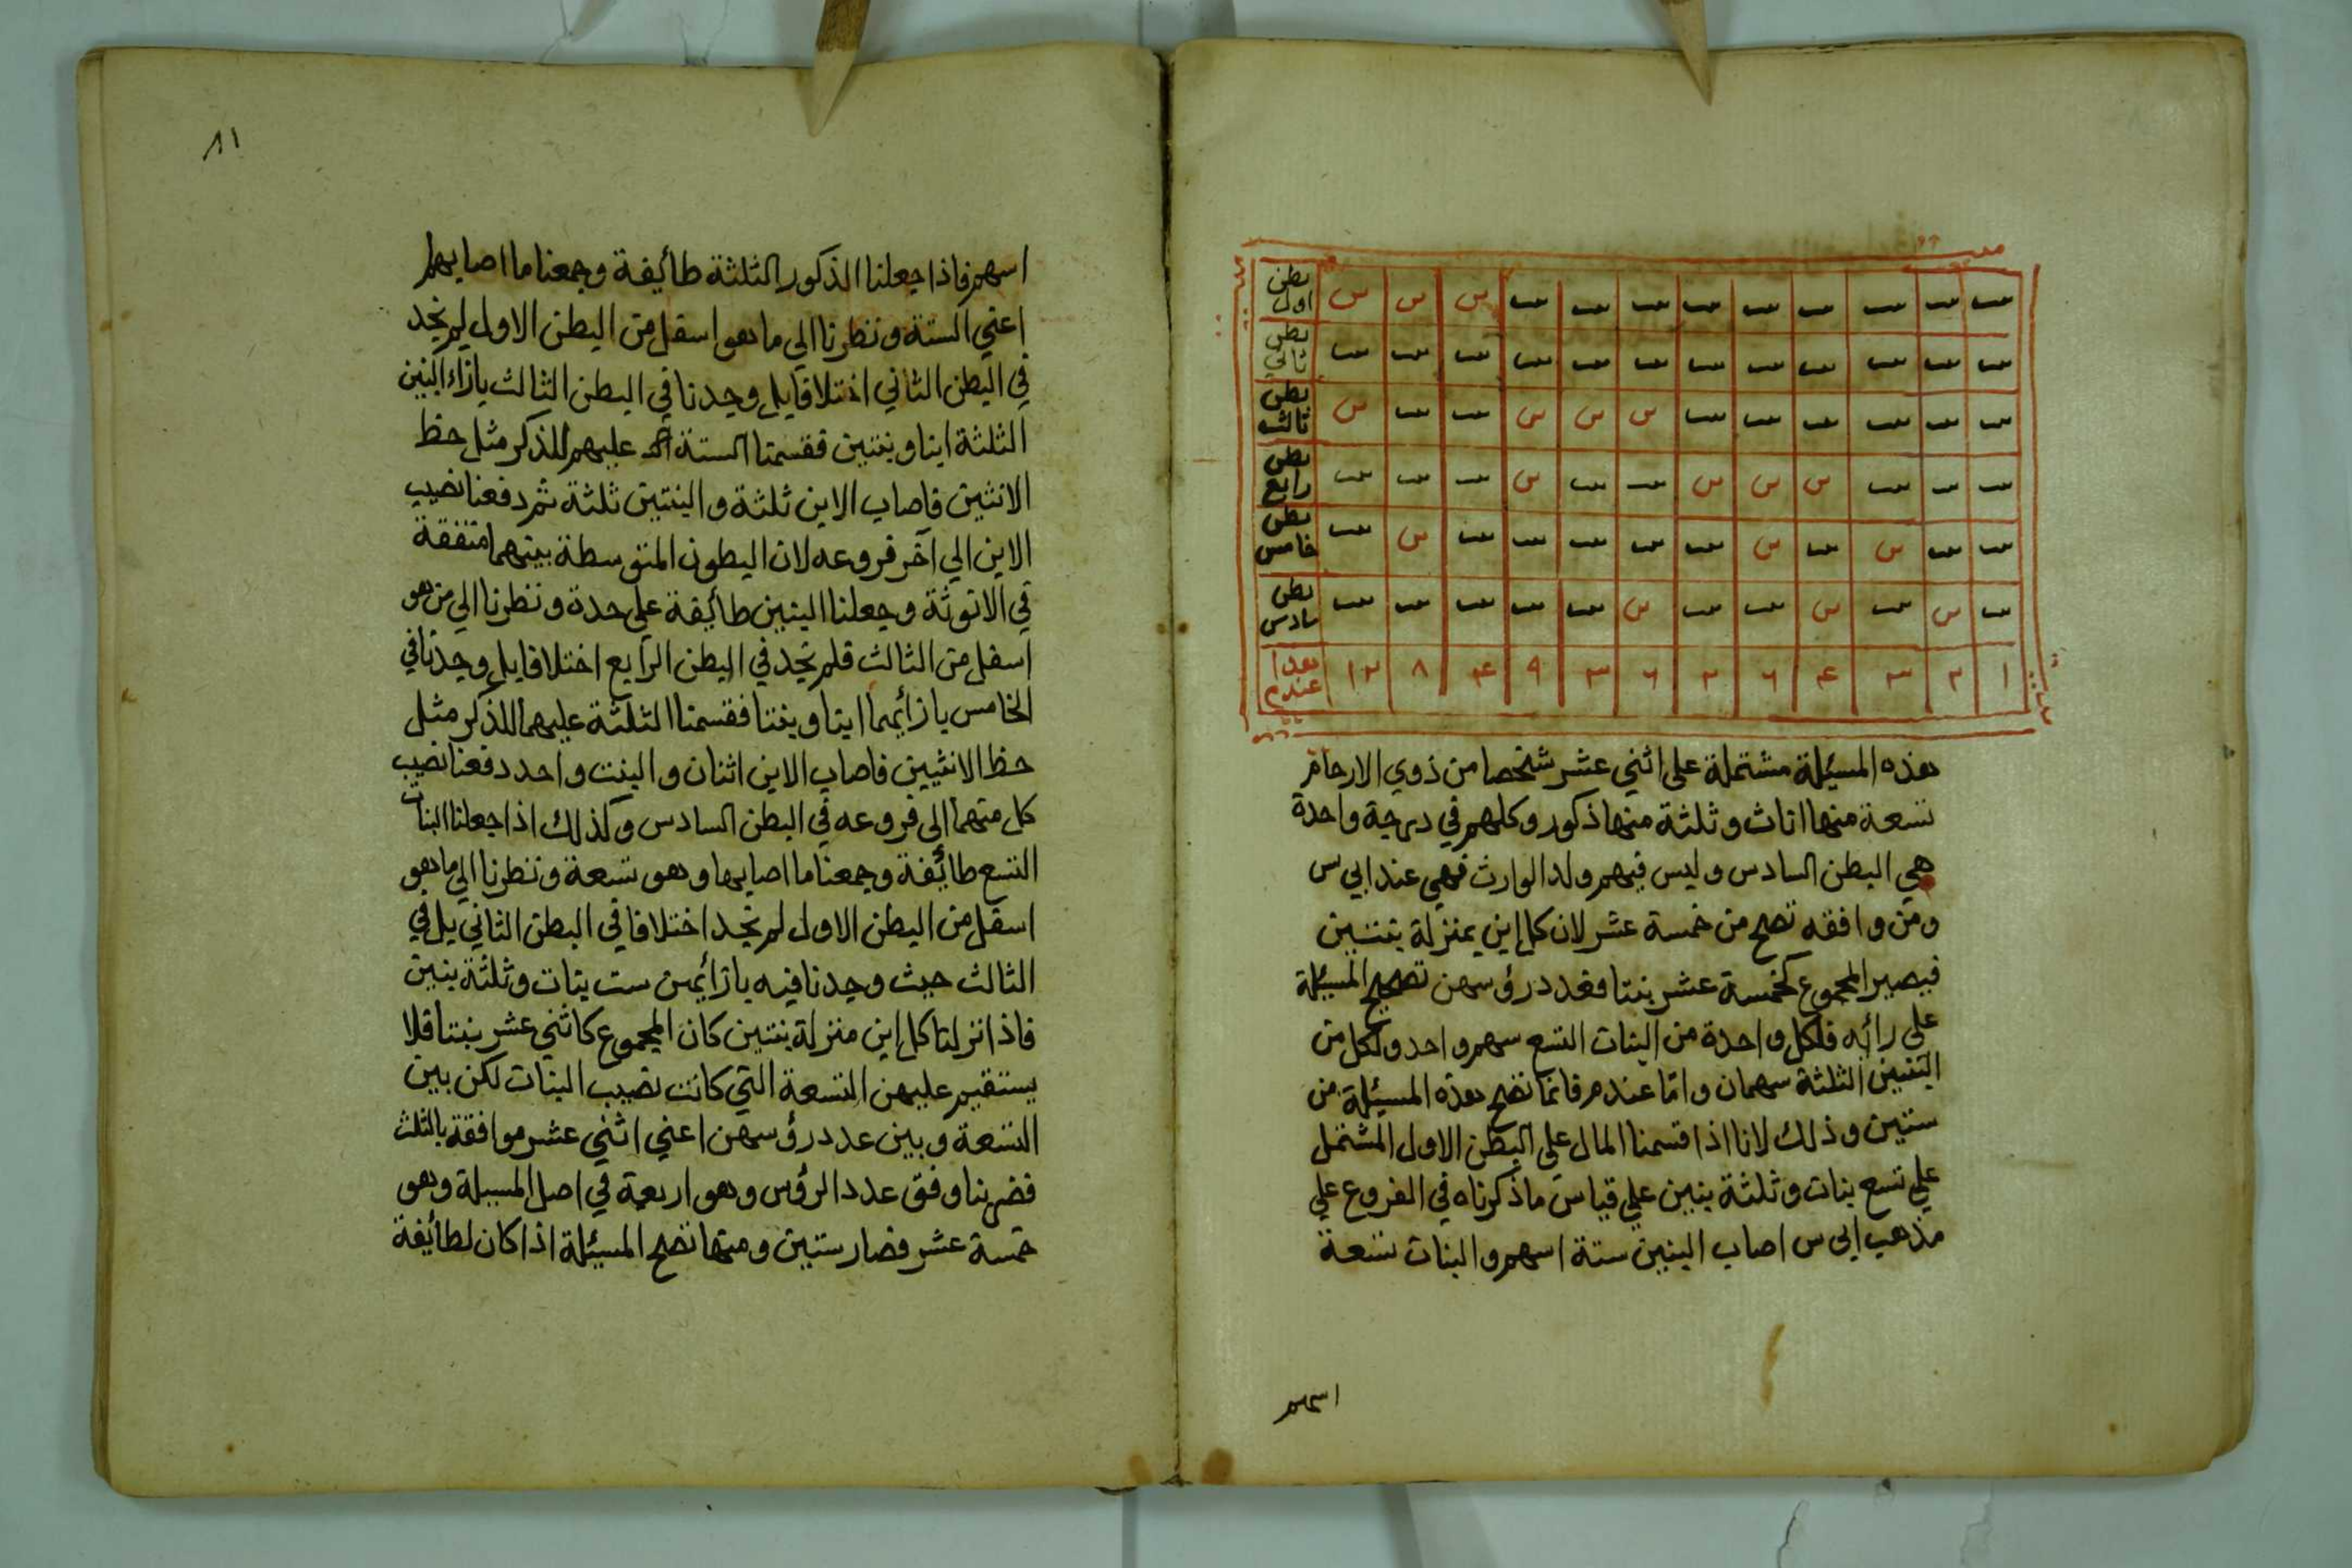 بطن اول س س س ‍ ‍ ‍ ‍ ‍ ‍ ‍ ‍ ‍
بطن ثاني
بطن ثالث س س س س
بطن رابع س س س س
بطن خامس س س س
بطن سادس س س س
١ ٢ ٣ ۴ ٦ ٢ ٦ ٣ ٩ ۴ ٨ ١٢
هذه المسئلة مشتملة على اثني عشر شخصا من ذوي الارحام
تسعة منها اناث وثلثة منها ذكور وكلهم في درجة واحدة
هي البطن السادس وليس فيهم ولد الوارث فهي عند ابي س
ومن وافقه تصح من خمسة عشر لان كل ابن بمنزلة بنتين
فيصير المجموع كخمسة عشر بنتا فعدد رؤسهن تصحيح المسئلة
على رائه فلكل واحدة من البنات التسع سهم واحد ولكل من
البنين الثلثة سهمان واما عند م فانما تصح هذه المسئلة من
ستين وذلك لانا اذا قسمنا المال علي البطن الاول المشتمل
علي تسع بنات وثلثة بنين علي قياس ما ذكرناه في الفروع علي
مذهب ابي س اصاب البنين ستة اسهم والبنات تسعة
اسهم
٨١
اسهم فاذا جعلنا الذكور الثلثة طائيفة وجمعنا ما اصابهم
اعني الستة ونظرنا الي ما هو اسفل من البطن الاول لم نجد
في البطن الثاني اختلافا بل وجدنا في البطن الثالث بازاء البنين
الثلثة ابنا وبنتين فقسمنا الستة عليهم للذكر مثل حظ
الانثيين فاصاب الابن ثلثة والبنتين ثلثة ثم دفعنا نصيب
الابن الي آخر فروعه لان البطون المتوسطة بينهما متفقة
في الانوثة وجعلنا البنتين طائيفة علي حدة ونظرنا الي من هو
اسفل من الثالث فلم نجد في البطن الرابع اختلافا بل وجدنا في
الخامس بازائيهما ابنا وبنتا فقسمنا الثلثة عليهما للذكر مثل
حظ الانثيين فاصاب الابن اثنان والبنت واحد دفعنا نصيب
كل منهما الى فروعه في البطن السادس وكذلك اذا جعلنا البنات
التسع طائيفة وجمعنا ما اصابها وهو تسعة ونظرنا الي ما هو
اسفل من البطن الاول لم نجد اختلافا في البطن الثاني بل في
الثالث حيث وجدنا فيه بازائيهن ست بنات وثلثة بنين
فاذا نزلنا كل ابن منزلة بنتين كان المجموع كاثني عشر بنتا فلا
يستقيم عليهن التسعة التي كانت نصيب البنات لكن بين
التسعة وبين عدد رؤسهن اعني اثني عشر موافقة بالثلث
فضربنا وفق عدد الرؤس وهو اربعة في اصل المسيلة وهو
خمسة عشر فصار ستين ومنها تصح المسيئلة اذا كان لطائيفة